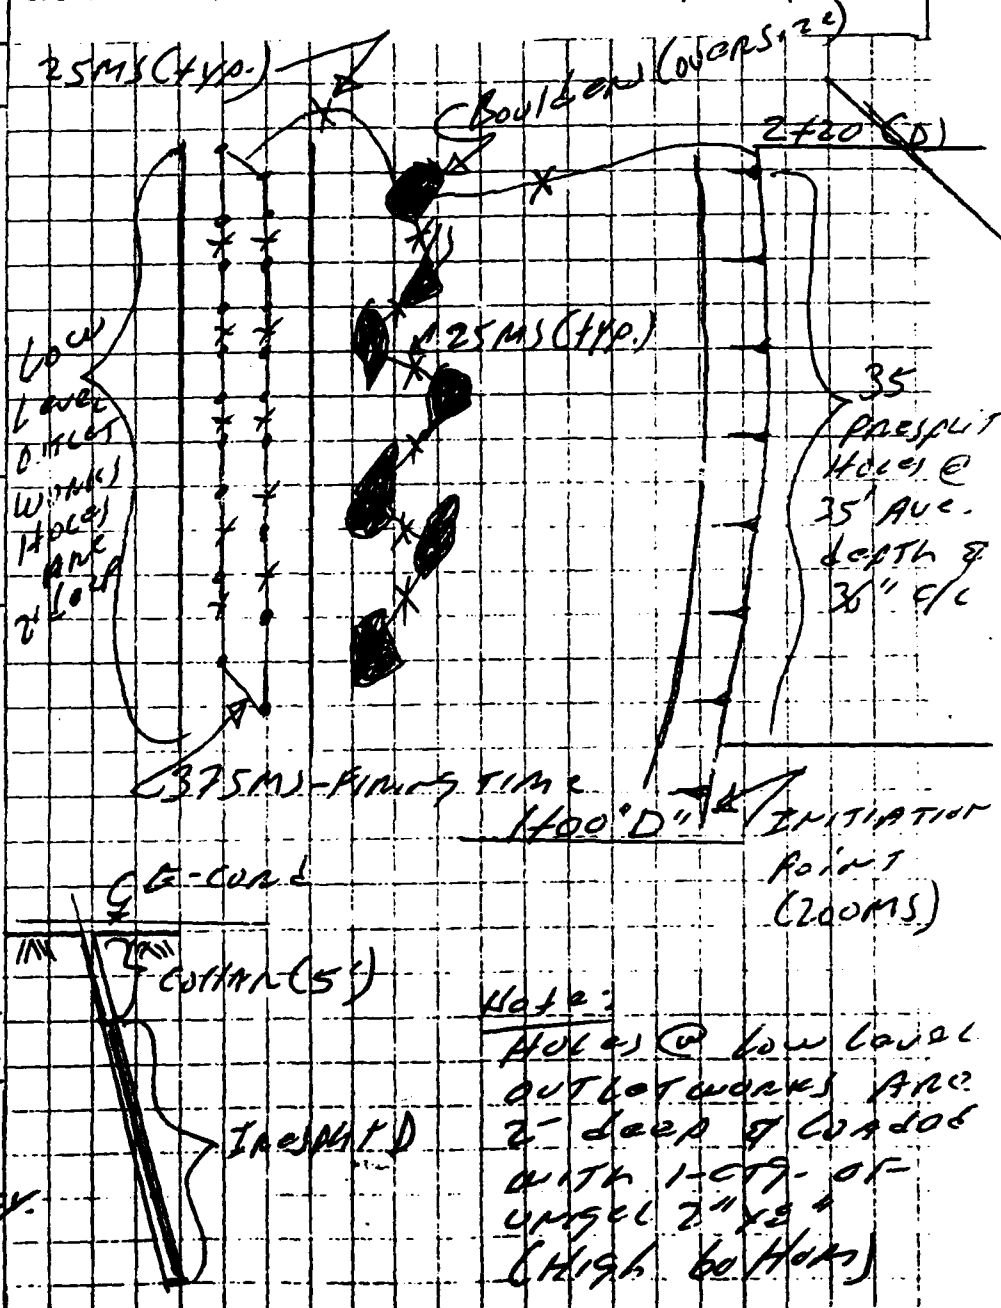 25MS (typ.)
Boulders (oversize)
2+20 (D)
25MS (typ.)
Low
Level
Outlet
Works
Holes
Are
2' deep
35
Presplit
Holes @
35' Ave.
depth &
36" c/c
375MS-Firing Time
1+00 "D"
Initiation
Point
(200MS)
E-Cord
Collar (5')
Presplit D
Note:
Holes @ Low Level
Outlet works Are
2' deep & Loaded
with 1-ctg. of
Unigel 2" x 8"
(High bottom)